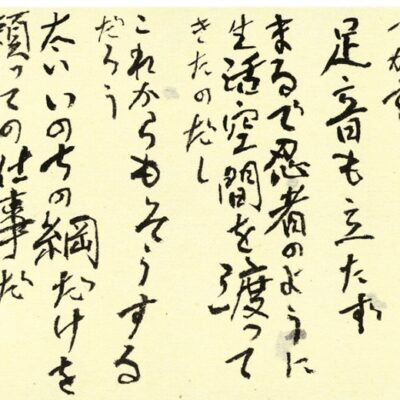 足音も立たず
まるで忍者のように
生活空間を渡って
きたのだし
これからもそうする
だろう
太いいのちの綱だけを
頼っての仕事だ